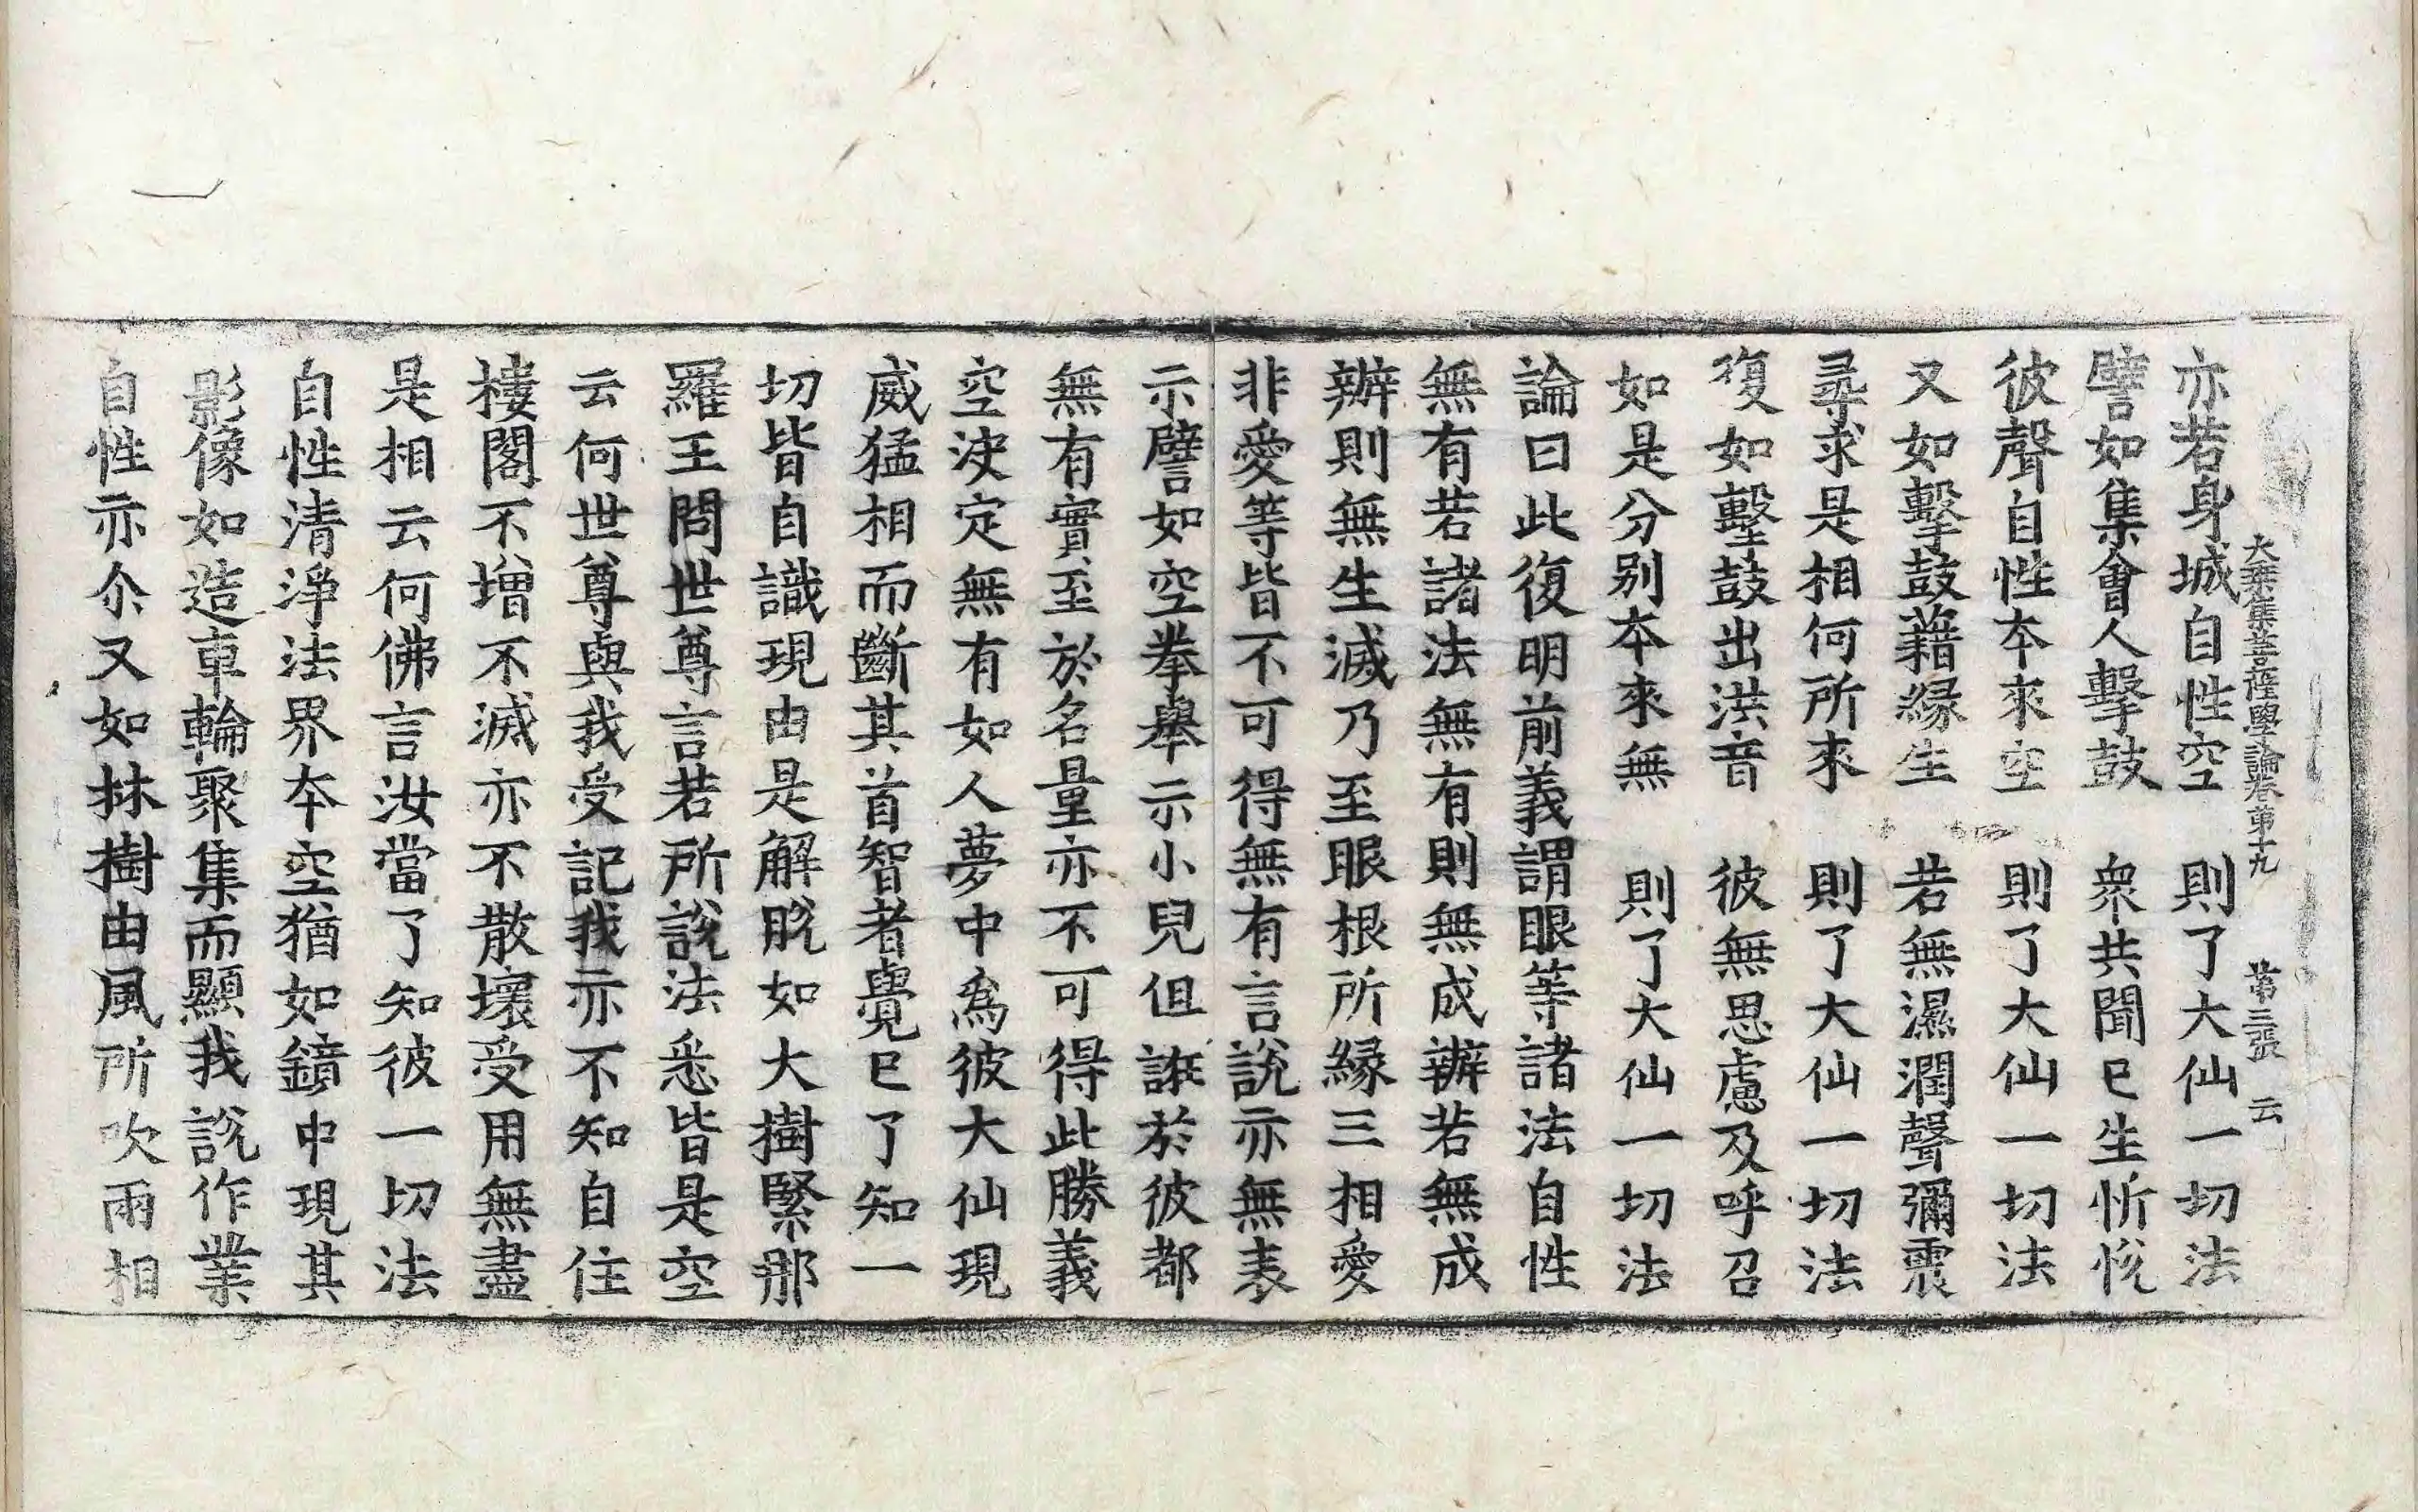 大乘集菩薩學論卷第十九　第三張　云
亦若身城自性空　則了大仙一切法
譬如集會人擊鼓　衆共聞已生忻悅
彼聲自性本來空　則了大仙一切法
又如擊鼓藉緣生　若無濕潤聲彌震
尋求是相何所來　則了大仙一切法
復如擊鼓出洪音　彼無思慮及呼召
如是分别本來無　則了大仙一切法
論曰此復明前義謂眼等諸法自性
無有若諸法無有則無成辦若無成
辦則無生滅乃至眼根所緣三相愛
非愛等皆不可得無有言說亦無表
示譬如空拳舉示小兒但誑於彼都
無有實至於名量亦不可得此勝義
空決定無有如人夢中爲彼大仙現
威猛相而斷其首智者覺已了知一
切皆自識現由是解脫如大樹緊那
羅王問世尊言若所說法悉皆是空
云何世尊與我受記我亦不知自住
樓閣不增不滅亦不散壞受用無盡
是相云何佛言汝當了知彼一切法
自性清淨法界本空猶如鏡中現其
影像如造車輪聚集而顯我說作業
自性亦尒又如林樹由風所吹兩相